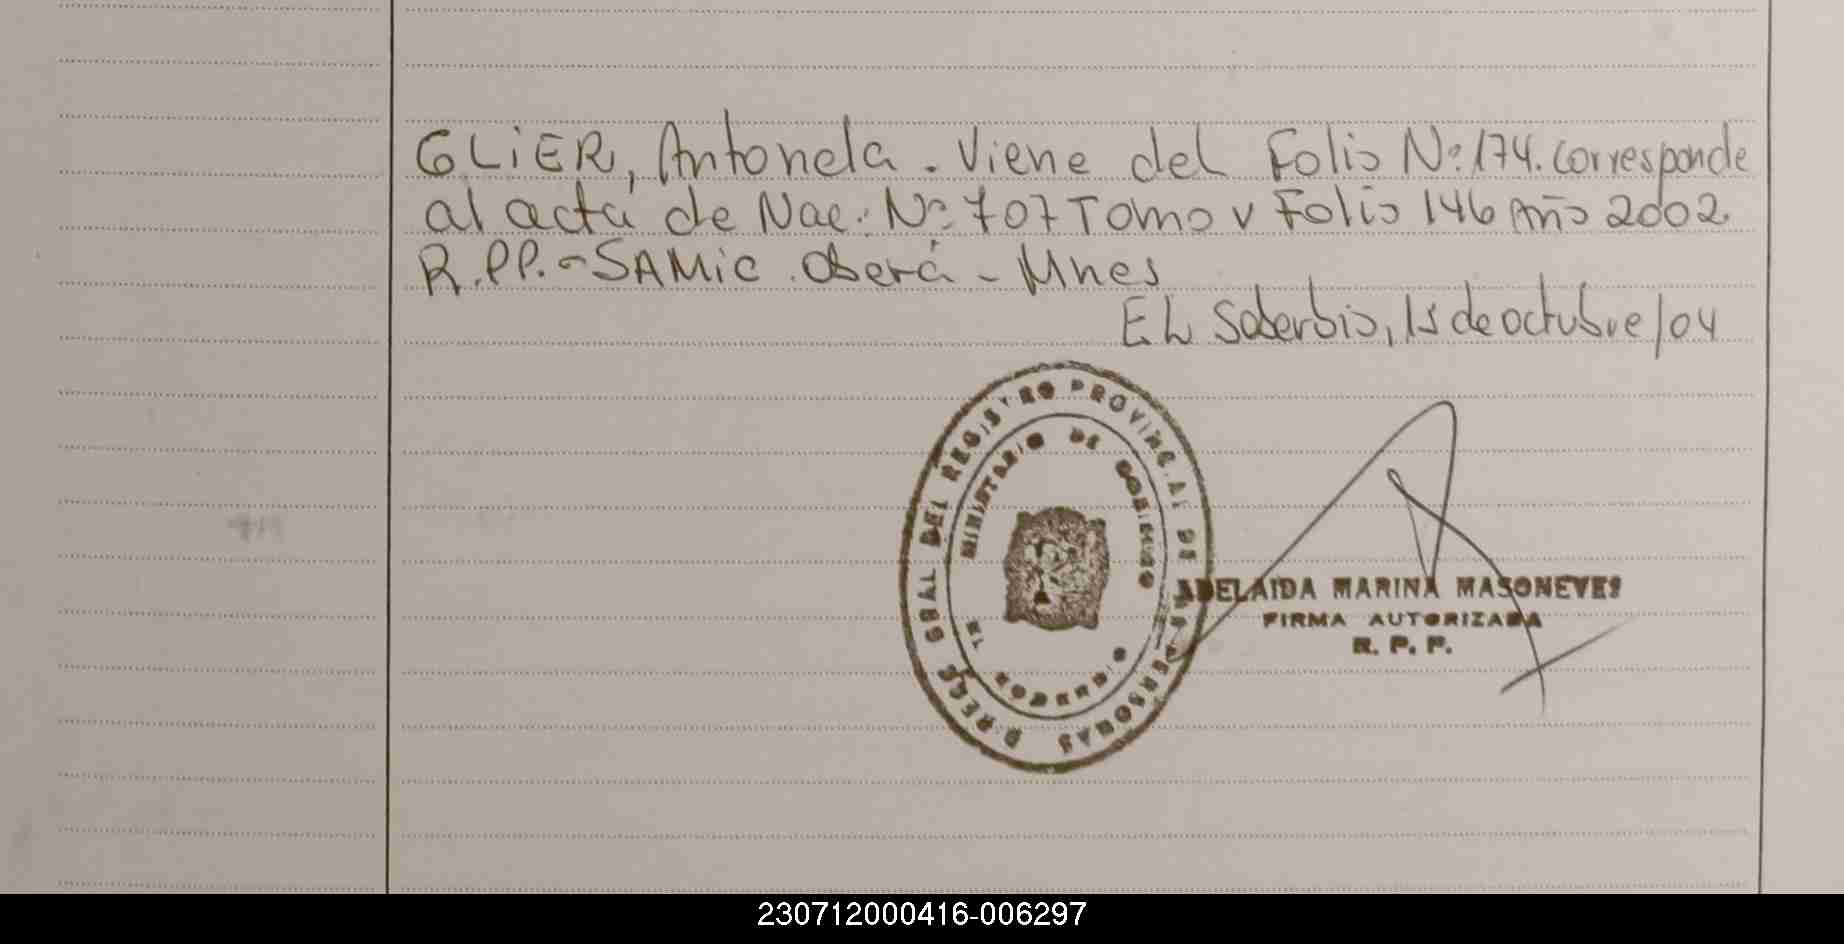 GLIER, Antonela. Viene del Folio Nº 174. Corresponde
al acta de Nac. Nº 707 Tomo V Folio 146 Año 2002
R.PP. - SAMIC. Oberá - Mnes
EL Soberbio, 15 de octubre/04
REGISTRO PROVINCIAL DE LAS PERSONAS
MINISTERIO DE GOBIERNO
ADELAIDA MARINA MASONEVES
FIRMA AUTORIZADA
R. P. P.
230712000416-006297